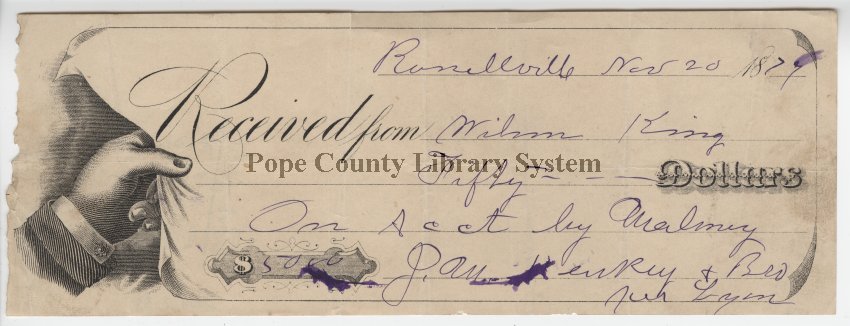 Russellville Nov 20 1879
Received from Wilson King
Pope County Library System
Fifty Dollars
On Acct by Maloney
$ 50 00 J. M. Henkey & Bro
per Lyon